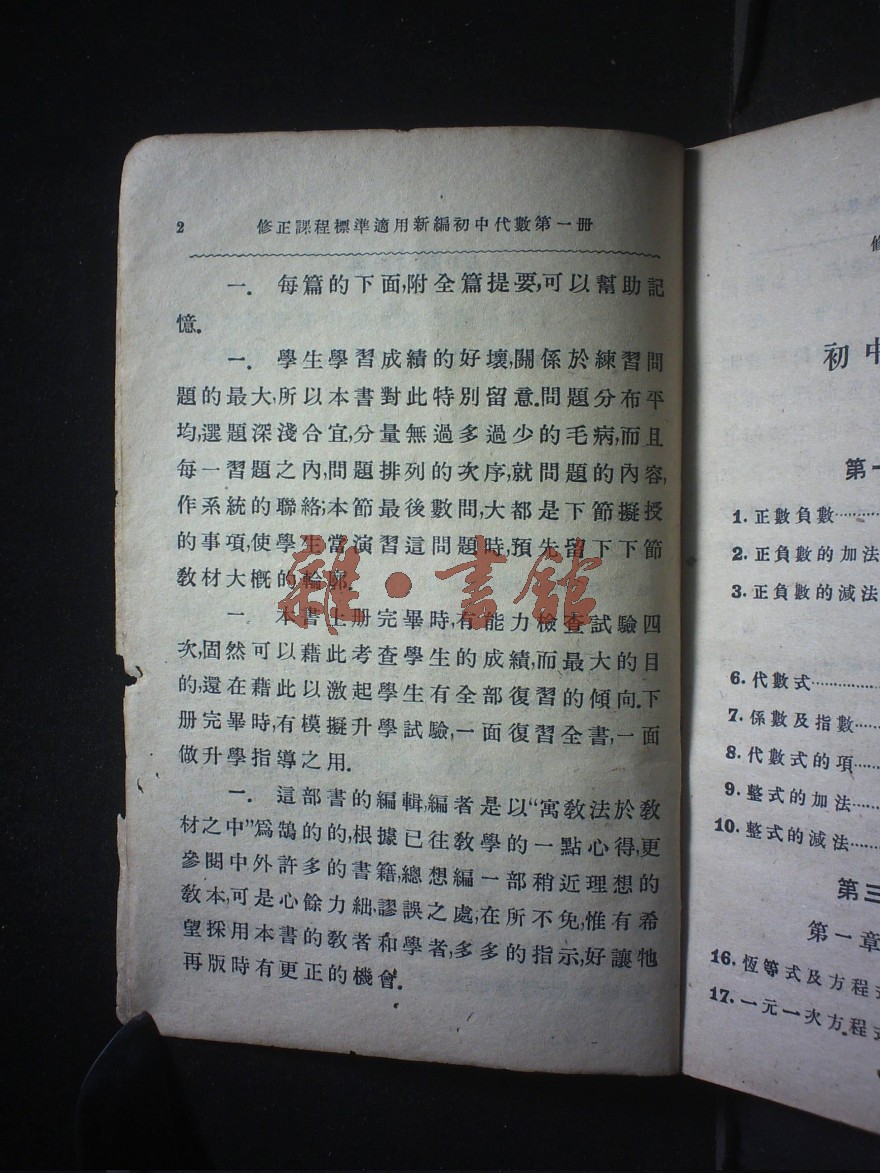 2 修正課程標準適用新編初中代數第一冊
一. 每篇的下面,附全篇提要,可以幫助記
憶.
一. 學生學習成績的好壞,關係於練習問
題的最大,所以本書對此特別留意.問題分布平
均,選題深淺合宜,分量無過多過少的毛病,而且
每一習題之內,問題排列的次序,就問題的內容,
作系統的聯絡;本節最後數問,大都是下節擬授
的事項,使學生當演習這問題時,預先留下下節
教材大概的輪廓.
一 本書上册完畢時,有能力檢查試驗四
次,固然可以藉此考查學生的成績,而最大的目
的,還在藉此以激起學生有全部復習的傾向.下
册完畢時,有模擬升學試驗,一面復習全書,一面
做升學指導之用.
一. 這部書的編輯,編者是以“寓教法於教
材之中”爲鵠的的,根據已往教學的一點心得,更
參閱中外許多的書籍,總想編一部稍近理想的
教本,可是心餘力絀,謬誤之處,在所不免,惟有希
望採用本書的教者和學者,多多的指示,好讓牠
再版時有更正的機會.
雜·書館
修
初中
第一
1. 正數負數
2. 正負數的加法
3. 正負數的減法
6. 代數式
7. 係數及指數
8. 代數式的項
9. 整式的加法
10. 整式的減法
第三
第一章
16. 恆等式及方程式
17. 一元一次方程式